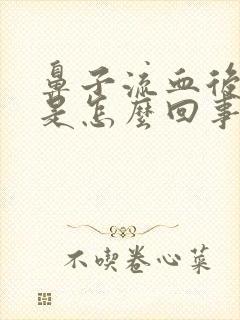 鼻子流血後
是怎麼回事
不喫卷心菜